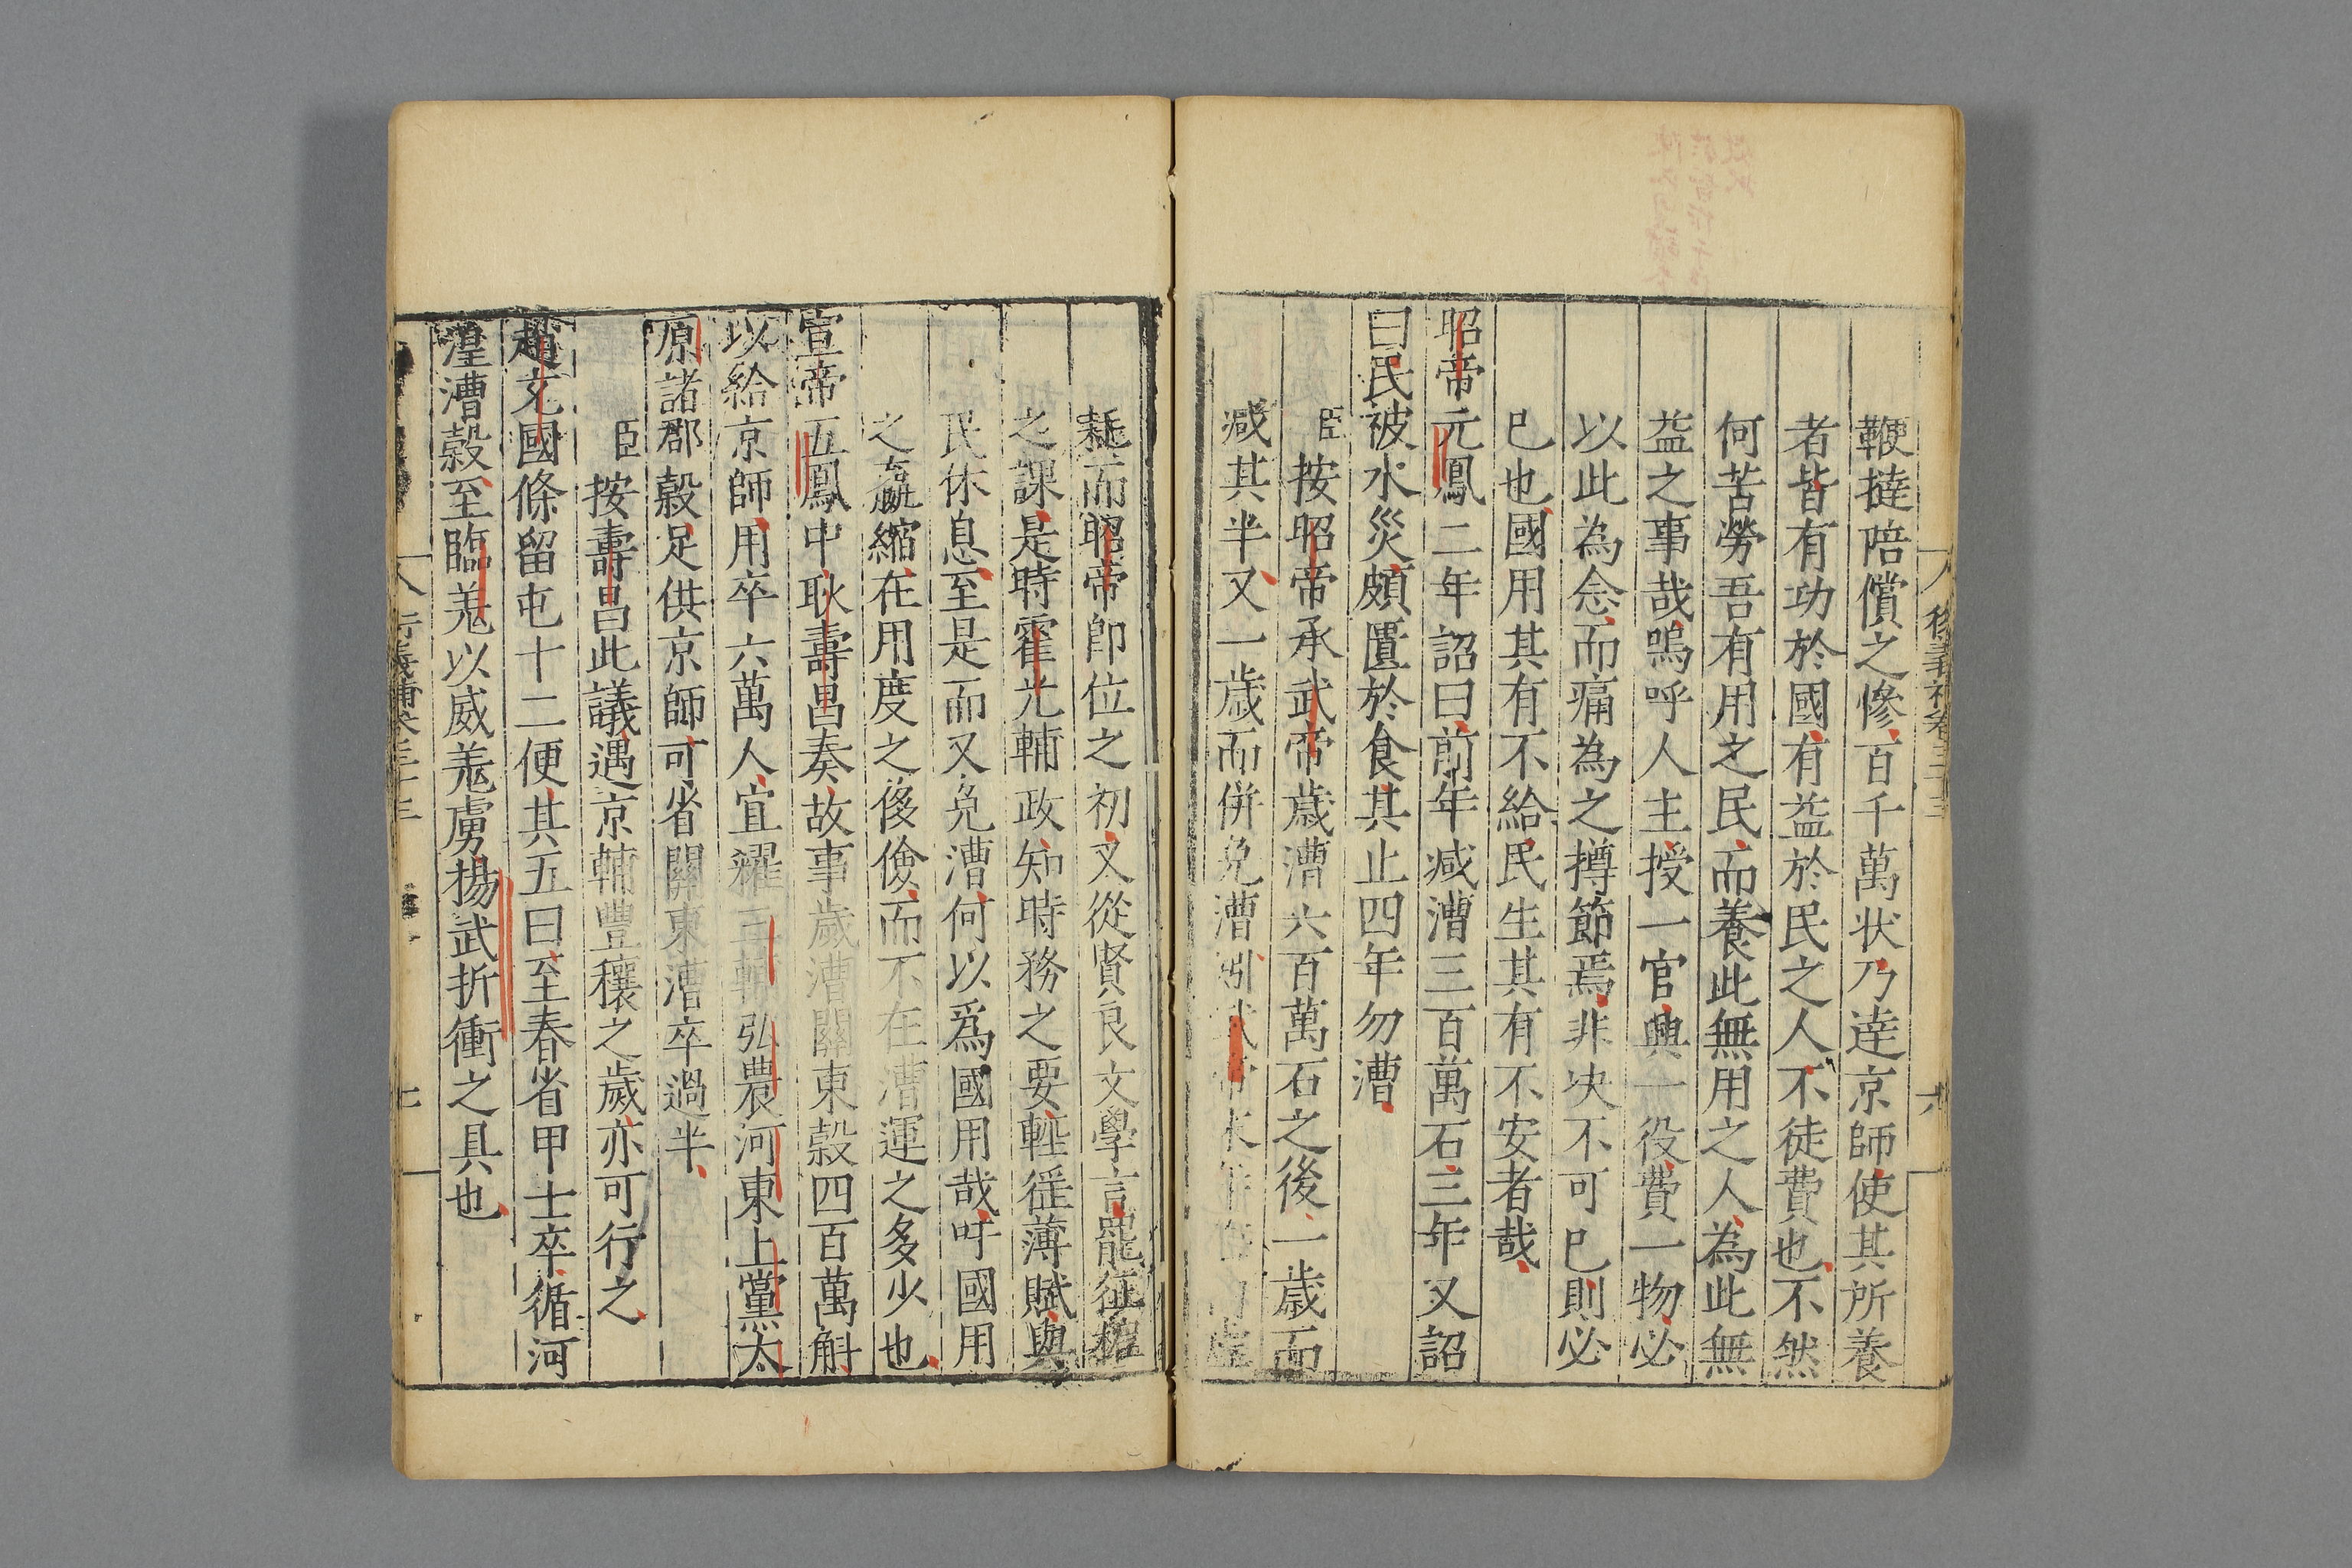 衍義補卷三十三
六
鞭撻陪償之慘百千萬狀乃達京師使其所養
者皆有功於國有益於民之人不徒費也不然
何苦勞吾有用之民而養此無用之人為此無
益之事哉嗚呼人主授一官興一役費一物必
以此為念而痛為之撙節焉非决不可已則必
已也國用其有不給民生其有不安者哉
昭帝元鳳二年詔曰前年减漕三百萬石三年又詔
曰民被水災頗匱於食其止四年勿漕
臣按昭帝承武帝歳漕六百萬石之後一歳而
减其半又一歳而併免漕矧武帝末年海内虛
耗而昭帝卽位之初又從賢良文學言罷征榷
之課是時霍光輔政知時務之要輕徭薄賦與
民休息至是而又免漕何以爲國用哉吁國用
之嬴縮在用度之侈儉而不在漕運之多少也
宣帝五鳳中耿壽昌奏故事歲漕關東穀四百萬斛
以給京師用卒六萬人宜糴三輔弘農河東上黨太
原諸郡穀足供京師可省關東漕卒過半
臣按壽昌此議遇京輔豐穰之歲亦可行之
趙充國條留屯十二便其五曰至春省甲士卒循河
湟漕穀至臨羗以威羗虜揚武折衝之具也
衍義補卷三十三
七